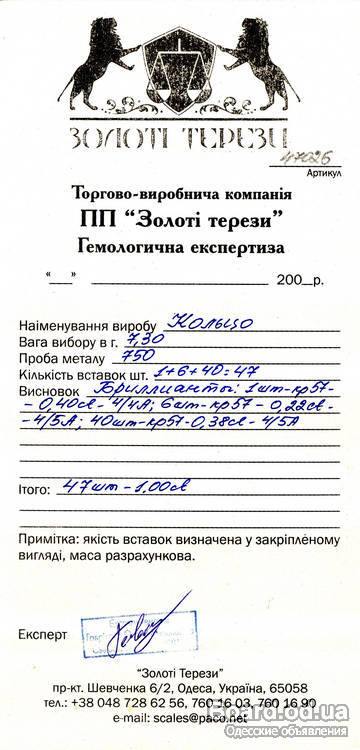 ЗОЛОТІ ТЕРЕЗИ
47026
Артикул
Торгово-виробнича компанія
ПП “Золоті терези”
Гемологична експертиза
“__” 200_р.
Наіменування виробу Кольцо
Вага вибору в г. 7,30
Проба металу 750
Кількість вставок шт. 1+6+40=47
Висновок Бриллианты: 1шт-кр57-
- 0,40ct- 4/4А; 6шт-кр57- 0,22ct
-4/5А; 40шт-кр57-0,38ct- 4/5А
Ітого: 47шт-1,00ct
Примітка: якість вставок визначена у закріпленому
вигляді, маса разрахункова.
Експерт
“Золоті Терези”
пр-кт. Шевченка 6/2, Одеса, Україна, 65058
тел.: +38 048 728 62 56, 760 16 03, 760 16 90
e-mail: scales@paco.net
Board.od.ua
Одесские объявления